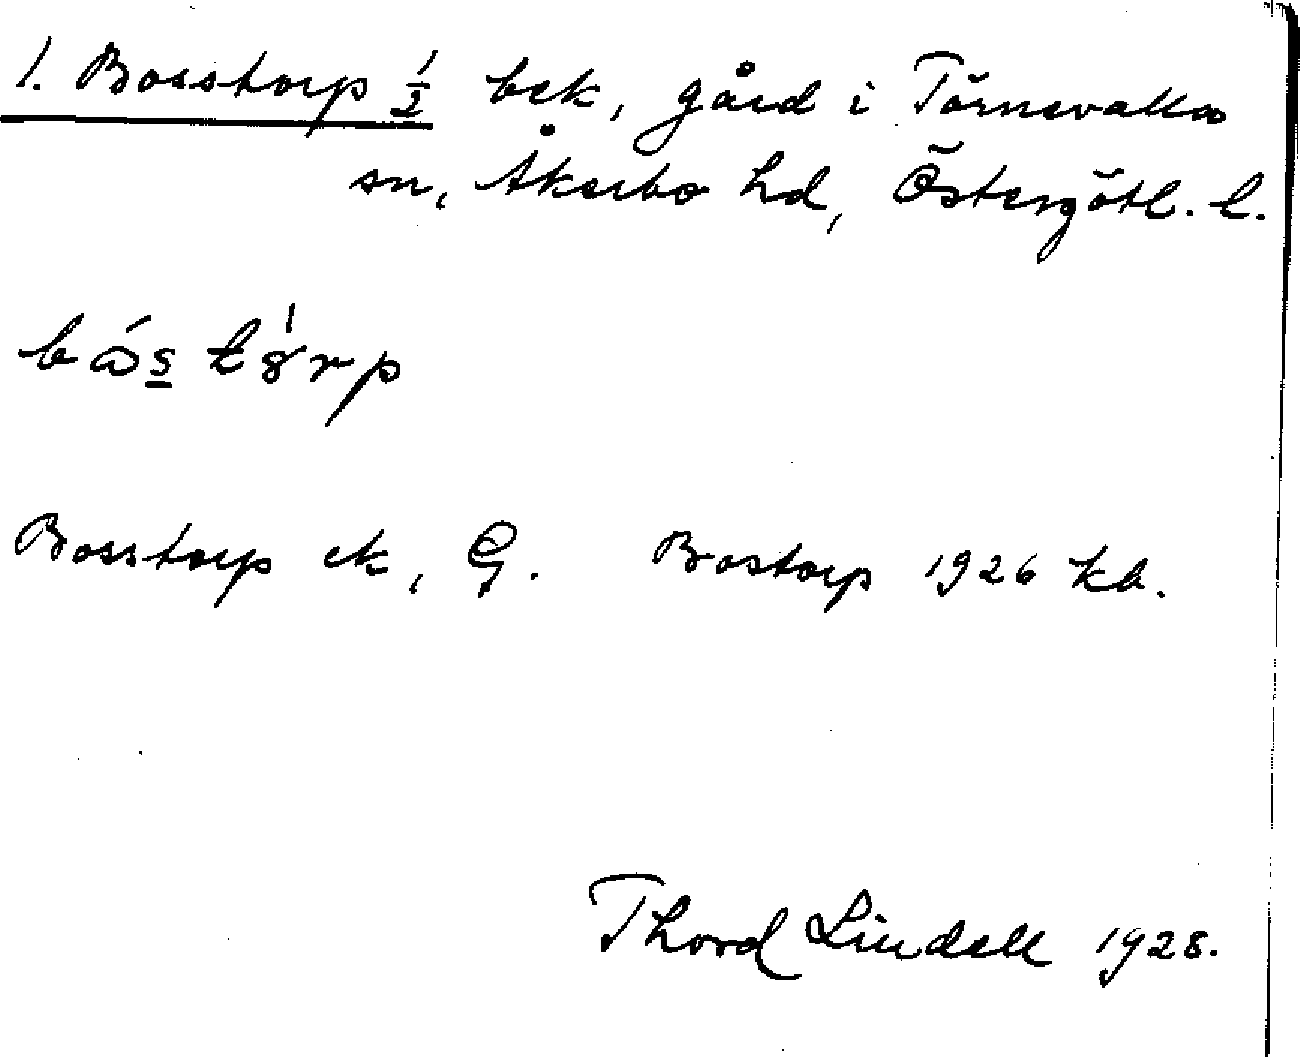 1. Bosstorp 1/2 bek, gård i Törnevalla
sn, Åkerbo hd, Östergötl. l.
Bosstorp ek, G. Bostorp 1926 kb.
Thord Lindell 1928.